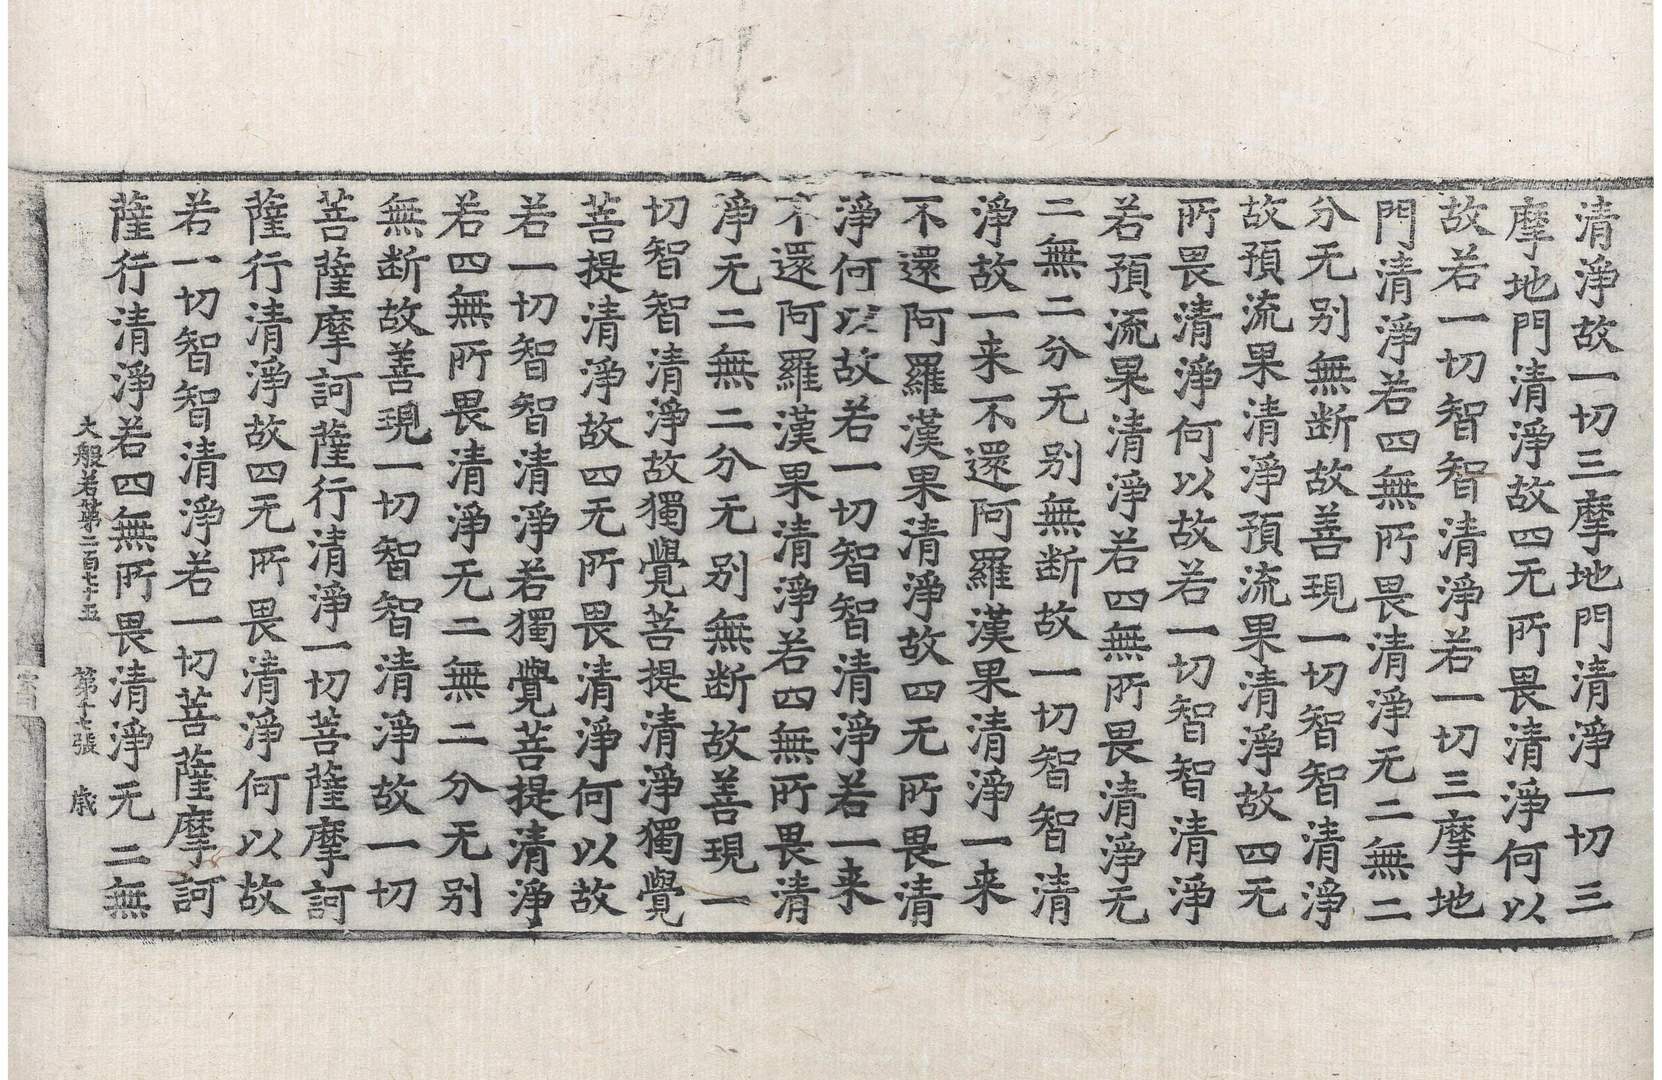 清淨故一切三摩地門清淨一切三
摩地門清淨故四无所畏清淨何以
故若一切智智清淨若一切三摩地
門清淨若四無所畏清淨无二無二
分无别無断故善現一切智智清淨
故預流果清淨預流果清淨故四无
所畏清淨何以故若一切智智清淨
若預流果清淨若四無所畏清淨无
二無二分无别無断故一切智智清
淨故一来不還阿羅漢果清淨一来
不還阿羅漢果清淨故四无所畏清
淨何以故若一切智智清淨若一来
不還阿羅漢果清淨若四無所畏清
淨无二無二分无别無断故善現一
切智智清淨故獨覺菩提清淨獨覺
菩提清淨故四无所畏清淨何以故
若一切智智清淨若獨覺菩提清淨
若四無所畏清淨无二無二分无别
無断故善現一切智智清淨故一切
菩薩摩訶薩行清淨一切菩薩摩訶
薩行清淨故四无所畏清淨何以故
若一切智智清淨若一切菩薩摩訶
薩行清淨若四無所畏清淨无二無
大般若第二百七十五 第十七張 歲